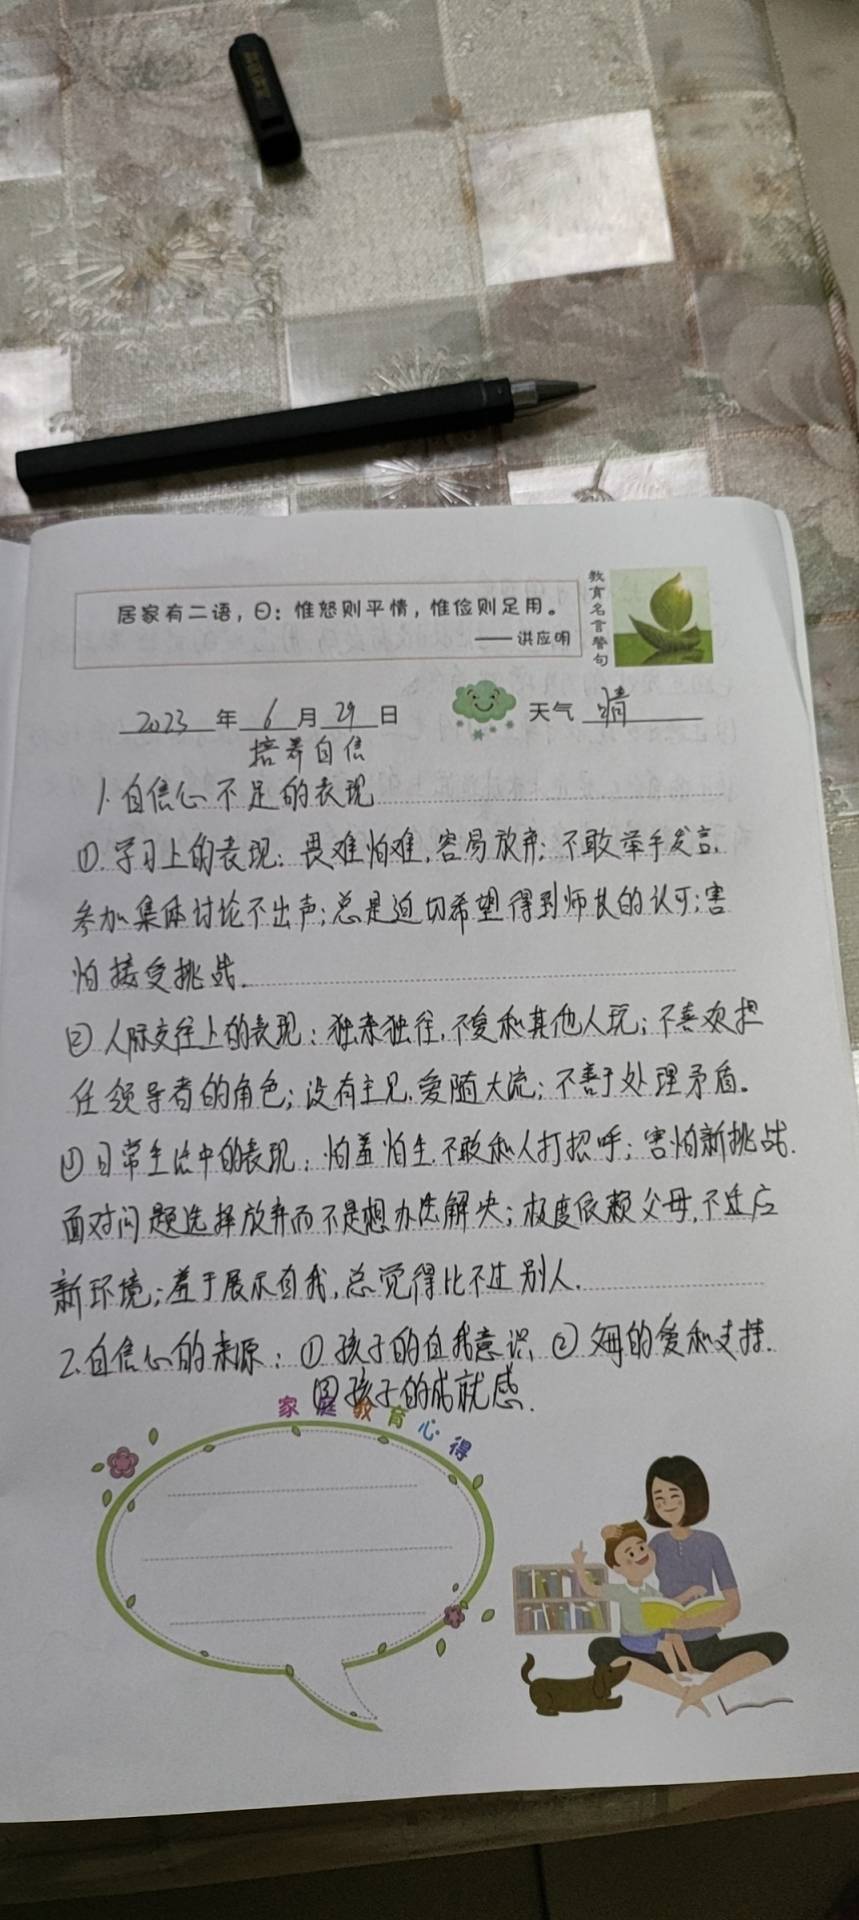 居家有二语，曰：惟怒则平情，惟俭则足用。
——洪应明
教育名言警句
2023年6月29日 天气 晴
培养自信
1.自信心不足的表现
①.学习上的表现：畏难怕难，容易放弃；不敢举手发言，
参加集体讨论不出声；总是迫切希望得到师长的认可；害
怕接受挑战.
②人际交往上的表现：独来独往，不爱和其他人玩；不喜欢担
任领导者的角色；没有主见，爱随大流；不善于处理矛盾。
③日常生活中的表现：怕羞怕生，不敢和人打招呼；害怕新挑战.
面对问题选择放弃而不是想办法解决；极度依赖父母，不适应
新环境；羞于展示自我，总觉得比不过别人.
2.自信心的来源：①孩子的自我意识 ②父母的爱和支持.
③孩子的成就感.
家庭教育心得